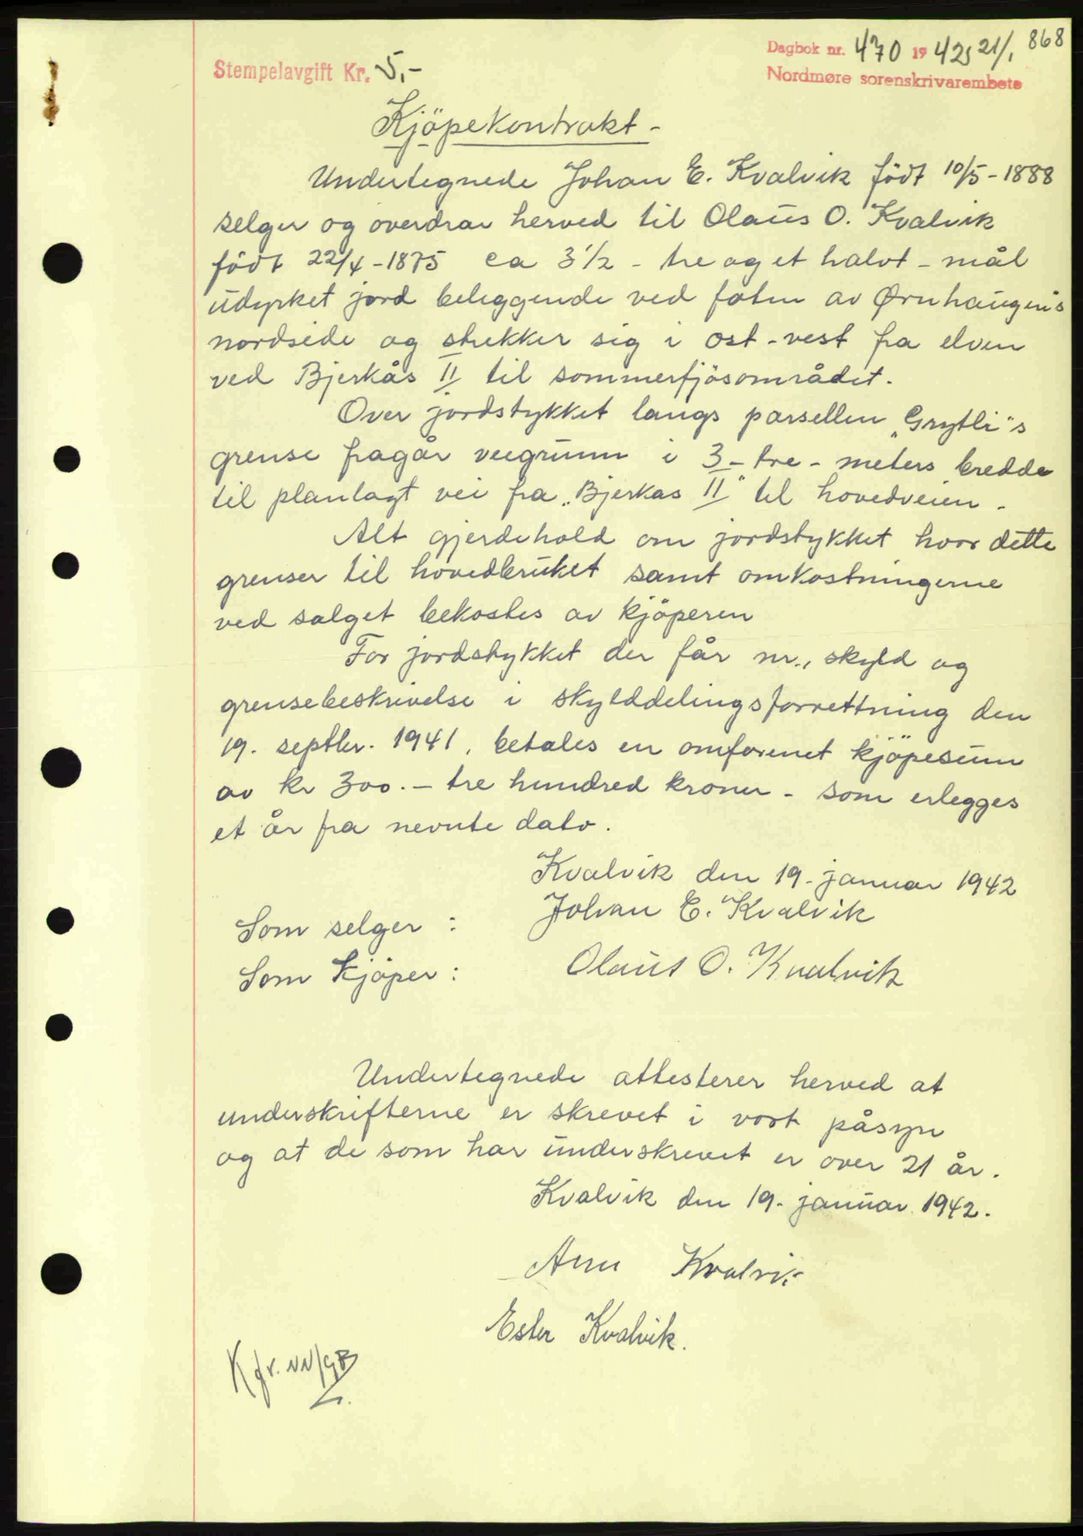 Stempelavgift Kr. 5,-
Dagbok nr. 470 1942 21/1 868
Nordmøre sorenskrivarembete
Kjöpekontrakt -
Undertegnede Johan E. Kvalvik födt 10/5-1888
selger og overdrar herved til Olaus O. Kvalvik
födt 22/4-1875 ca 3 1/2 - tre og et halvt - mål
udyrket jord beliggende ved foten av Ørnhaugens
nordside og strekker sig i ost-vest fra elven
ved Bjerkås II til sommerfjösområdet.
Over jordstykket langs parsellen "Grytli"s
grense fragår veigrunn i 3 - tre - meters bredde
til planlagt vei fra "Bjerkas II" til hovedveien.
Alt gjerdehold om jordstykket hvor dette
grenser til hovedbruket samt omkostningerne
ved salget bekostes av kjöperen
For jordstykket der får nr., skyld og
grensebeskrivelse i skylddelingsforrettning den
19. septbr. 1941, betales en omforenet kjöpesum
av kr 300.- tre hundred kroner - som erlegges
et år fra nevnte dato.
Kvalvik den 19. januar 1942
Som selger : Johan E. Kvalvik
Som kjöper : Olaus O. Kvalvik
Undertegnede attesterer herved at
underskrifterne er skrevet i vort påsyn
og at de som har underskrevet er over 21 år.
Kvalvik den 19. januar 1942.
Kvalvik
Ester Kvalvik.
Kfr. NN/GB